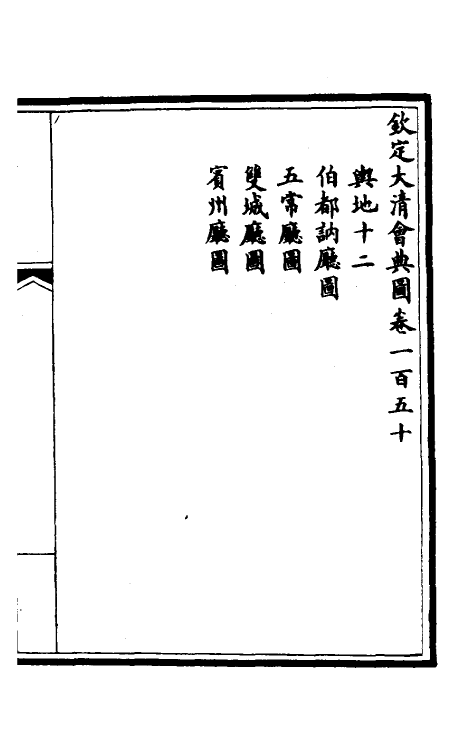 欽定大清會典圖卷一百五十
輿地十二
伯都訥廳圖
五常廳圖
雙城廳圖
賓州廳圖